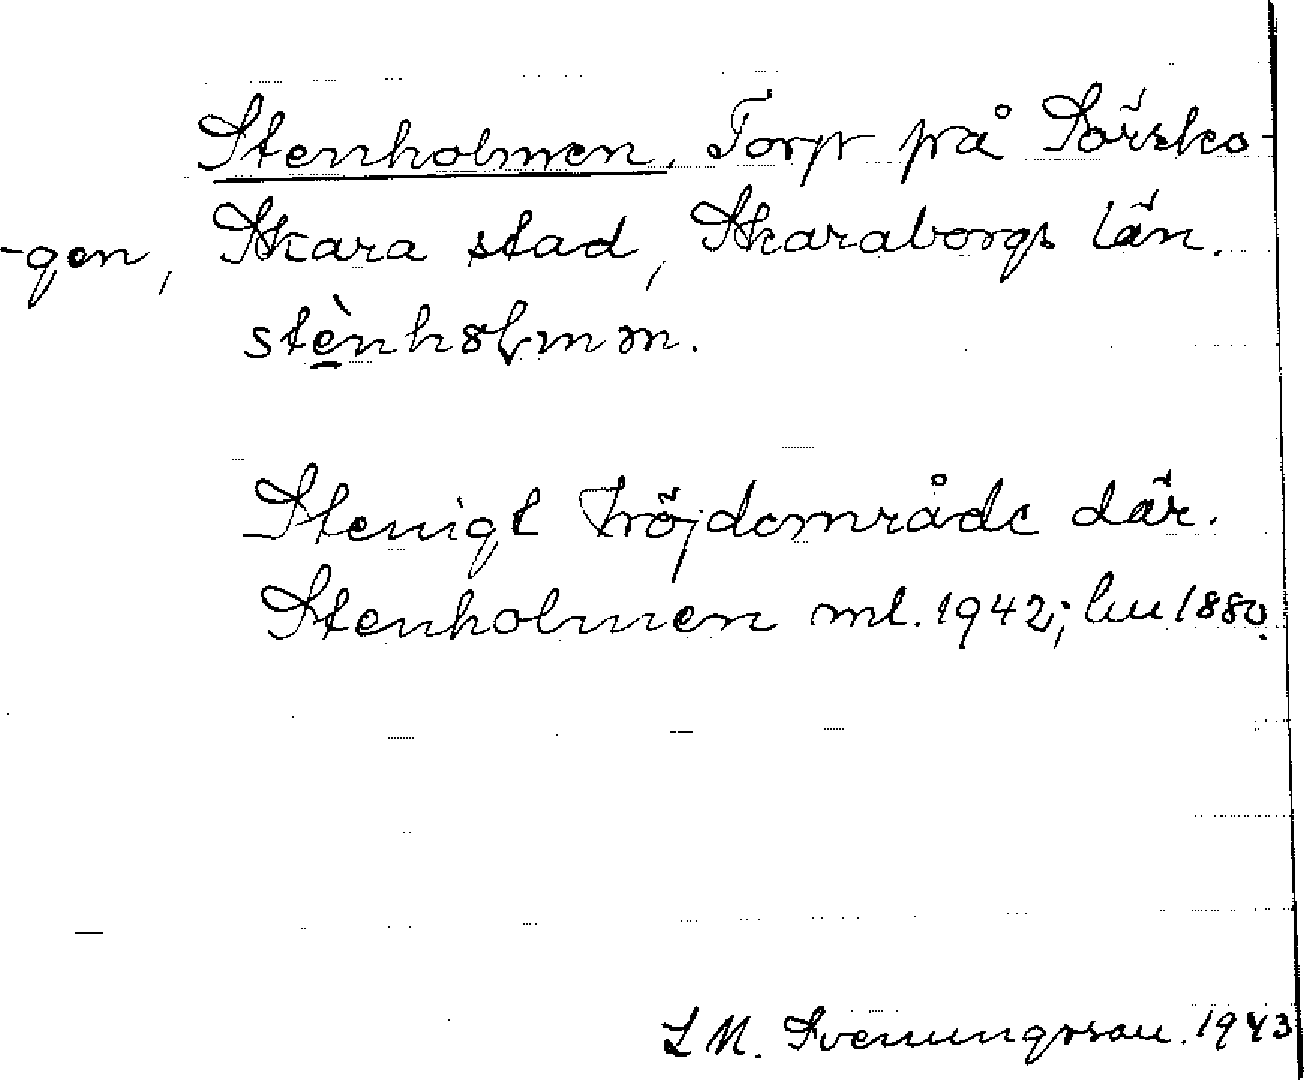 Stenholmen. Torp på Sörsko-
-gen, Skara stad, Skaraborgs län.
stènhɷɭmm̥.
Stenigt höjdområde där.
Stenholmen ml. 1942; hu 1880.
L M. Svenungsson. 1943